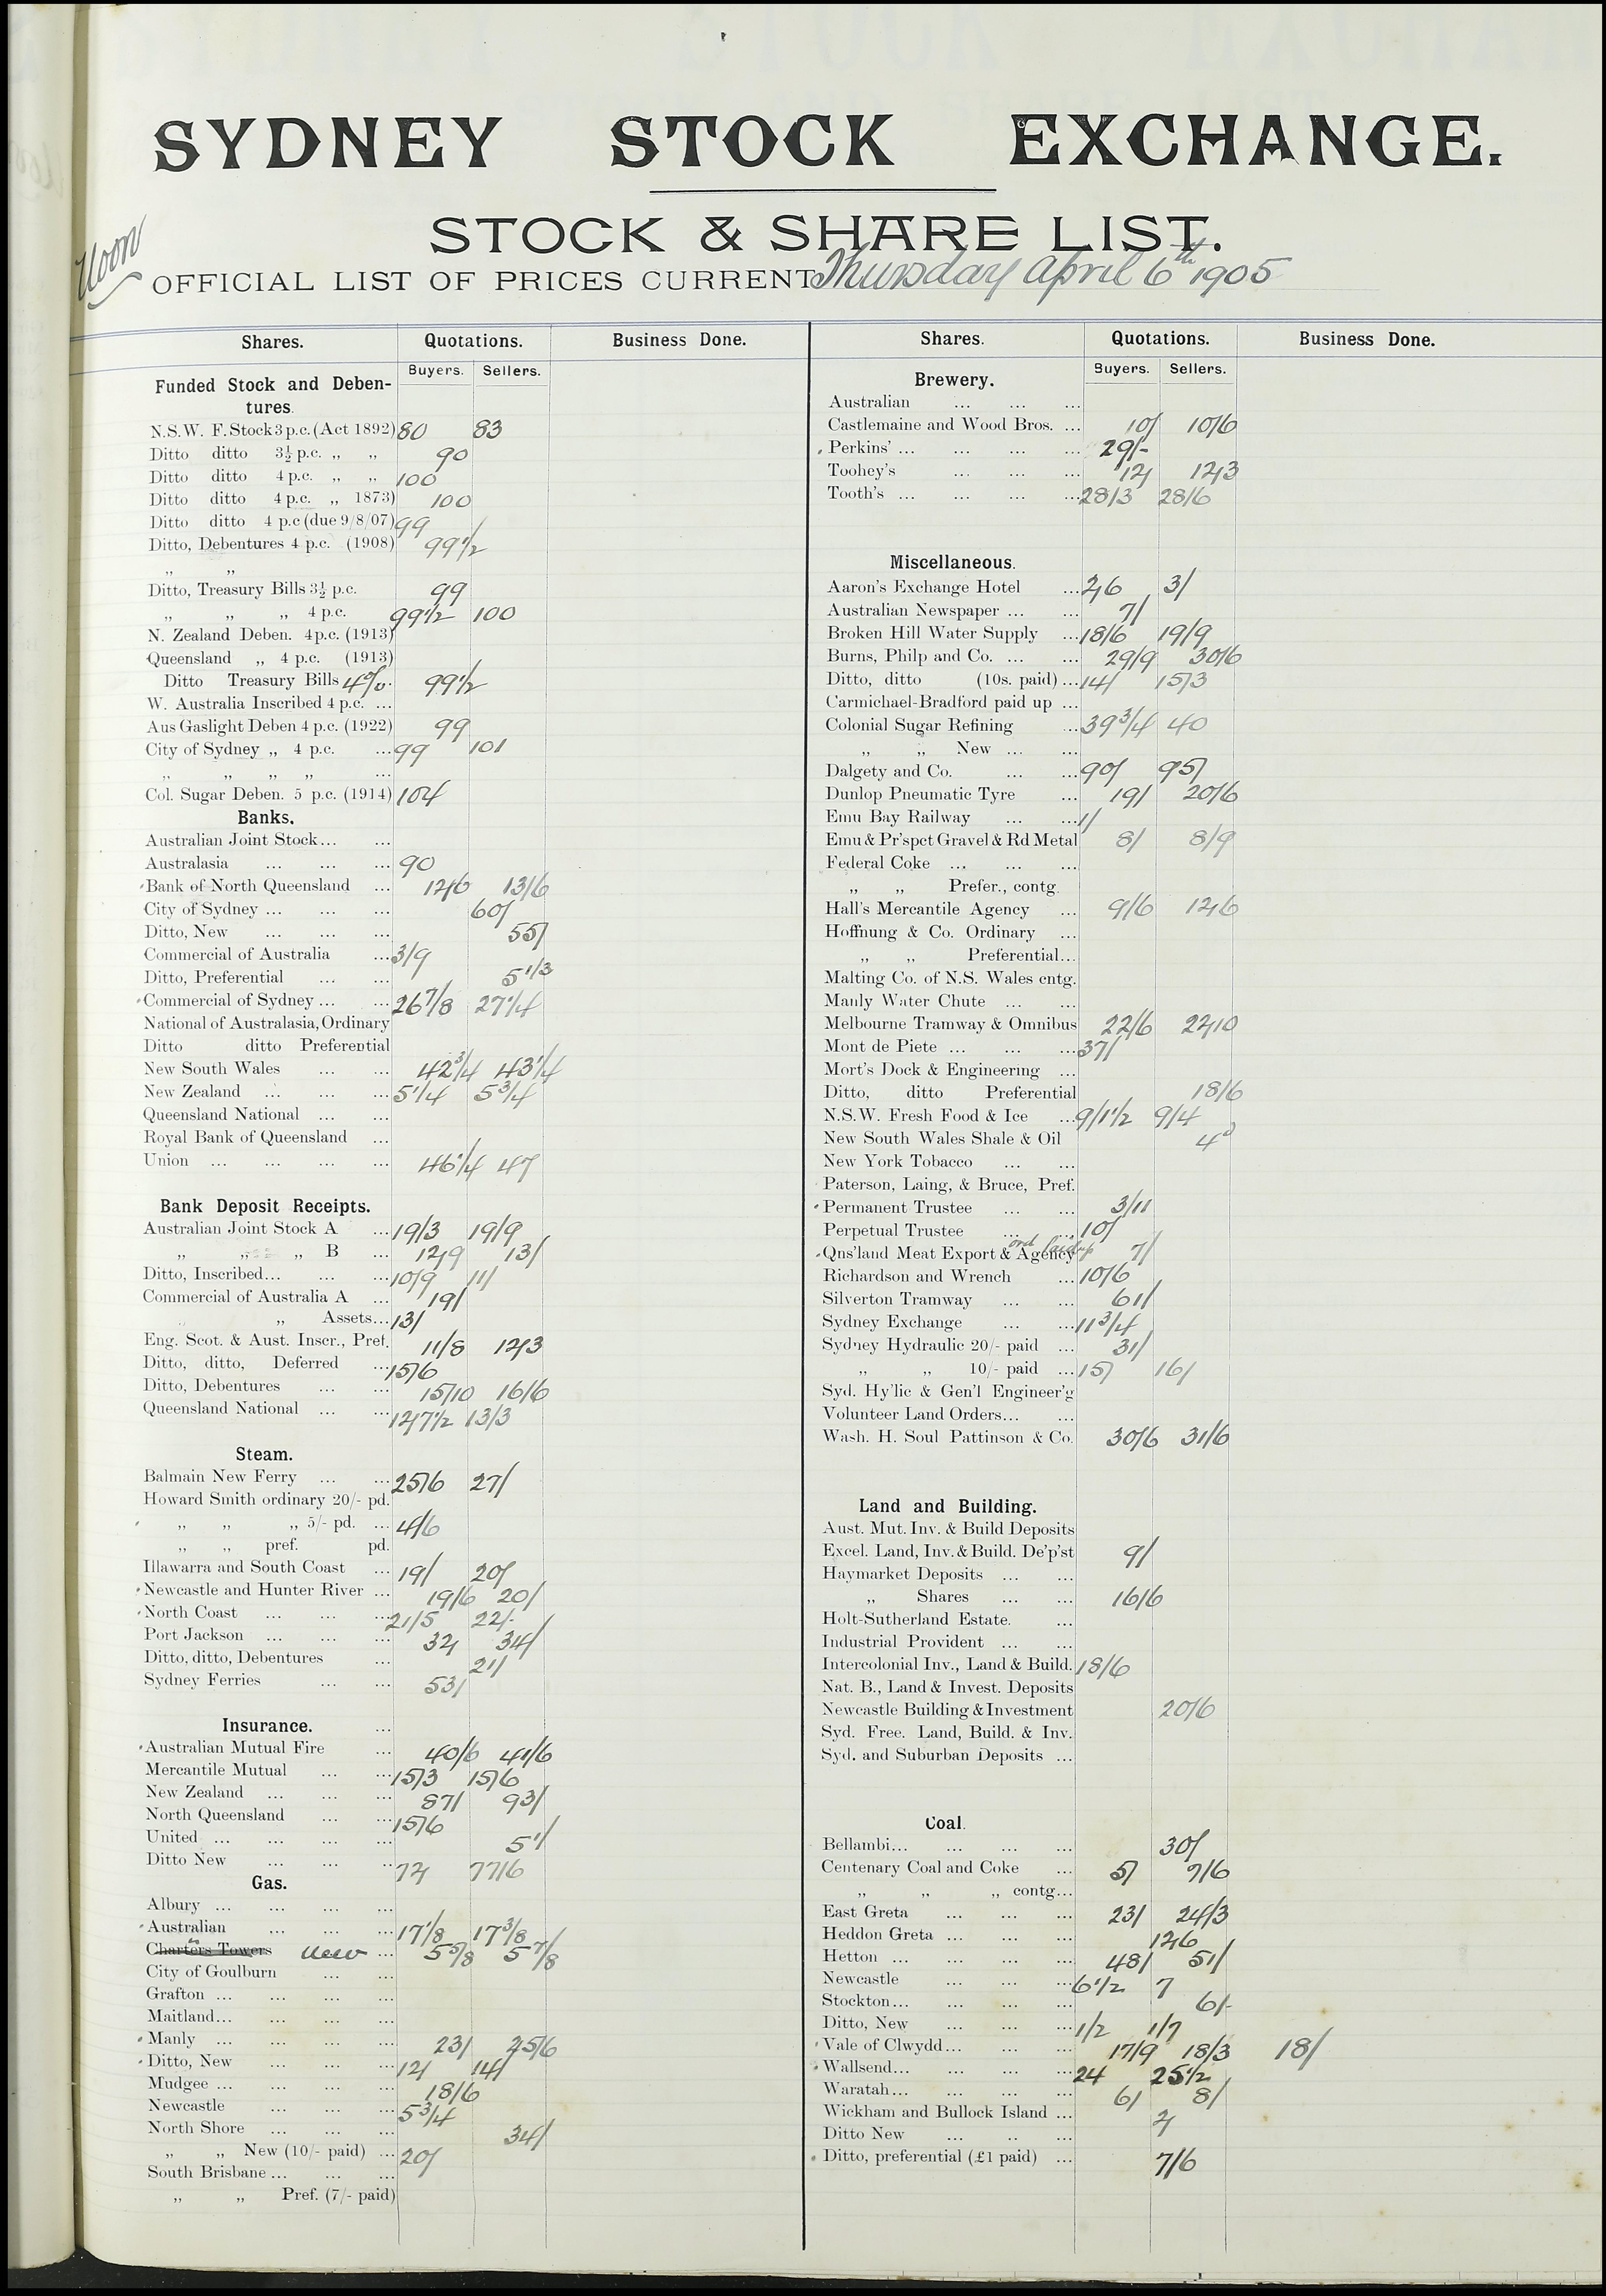 SYDNEY STOCK EXCHANGE.
STOCK & SHARE LIST.
Noon
OFFICIAL LIST OF PRICES CURRENT Thursday April 6th 1905
Shares. Quotations. Business Done.
Buyers. Sellers.
Funded Stock and Deben-
tures.
N.S.W. F. Stock 3 p.c. (Act 1892) 80 83
Ditto ditto 3½ p.c. „ „ 90
Ditto ditto 4 p.c. „ „ 100
Ditto ditto 4 p.c. „ 1873) 100
Ditto ditto 4 p.c (due 9/8/07) 99
Ditto, Debentures 4 p.c. (1908) 99½
„ „
Ditto, Treasury Bills 3½ p.c. 99
„ „ „ 4 p.c. 99½ 100
N. Zealand Deben. 4 p.c. (1913)
Queensland „ 4 p.c. (1913)
Ditto Treasury Bills 4%. 99½
W. Australia Inscribed 4 p.c. ...
Aus Gaslight Deben 4 p.c. (1922) 99
City of Sydney „ 4 p.c. ... 99 101
„ „ „ „ ...
Col. Sugar Deben. 5 p.c. (1914) 104
Banks.
Australian Joint Stock... ...
Australasia ... ... ... 90
Bank of North Queensland ... 12/6 13/6
City of Sydney ... ... ... 60/
Ditto, New ... ... ... 55/
Commercial of Australia ... 3/9
Ditto, Preferential ... ... 5 1/3
Commercial of Sydney ... ... 26 7/8 27 1/4
National of Australasia, Ordinary
Ditto ditto Preferential
New South Wales ... ... 42 3/4 43 1/4
New Zealand ... ... ... 5 1/4 5 3/4
Queensland National ... ...
Royal Bank of Queensland ...
Union ... ... ... ... 46 1/4 47
Bank Deposit Receipts.
Australian Joint Stock A ... 19/3 19/9
„ „ „ B ... 12/9 13/
Ditto, Inscribed... ... ... 10/9 11/
Commercial of Australia A ... 19/
„ Assets... 13/
Eng. Scot. & Aust. Inscr., Pref. 11/8 12/3
Ditto, ditto, Deferred ... 15/6
Ditto, Debentures ... ... 15/10 16/6
Queensland National ... ... 12/7½ 13/3
Steam.
Balmain New Ferry ... ... 25/6 27/
Howard Smith ordinary 20/- pd.
„ „ „ 5/- pd. ... 4/6
„ „ pref. pd.
Illawarra and South Coast ... 19/ 20/
Newcastle and Hunter River ... 19/6 20/
North Coast ... ... ... 21/5 22/-
Port Jackson ... ... ... 32/ 34/
Ditto, ditto, Debentures ... 21/
Sydney Ferries ... ... 53/
Insurance. ...
Australian Mutual Fire ... 40/6 41/6
Mercantile Mutual ... ... 15/3 15/6
New Zealand ... ... ... 87/ 93/
North Queensland ... ... 15/6
United ... ... ... ... 5 1/
Ditto New ... ... ... 72/ 77/6
Gas.
Albury ... ... ... ...
Australian ... ... ... 17 1/8 17 3/8
Charters Towers New ... 5 5/8 5 7/8
City of Goulburn ... ...
Grafton ... ... ... ...
Maitland... ... ... ...
Manly ... ... ... ... 23/ 25/6
Ditto, New ... ... ... 12/ 14/
Mudgee ... ... ... ... 18/6
Newcastle ... ... ... 5 3/4
North Shore ... ... ... 34/
„ „ New (10/- paid) ... 20/
South Brisbane ... ... ...
„ „ Pref. (7/- paid)
Shares. Quotations. Business Done.
Buyers. Sellers.
Brewery.
Australian ... ... ...
Castlemaine and Wood Bros. ... 10/ 10/6
Perkins' ... ... ... ... 29/-
Toohey's ... ... ... 12/ 12/3
Tooth's ... ... ... ... 28/3 28/6
Miscellaneous.
Aaron's Exchange Hotel ... 2/6 3/
Australian Newspaper ... ... 7/
Broken Hill Water Supply ... 18/6 19/9
Burns, Philp and Co. ... ... 29/9 30/6
Ditto, ditto (10s. paid) ... 14/ 15/3
Carmichael-Bradford paid up ...
Colonial Sugar Refining ... 39 3/4 40
„ „ New ... ...
Dalgety and Co. ... ... 90/ 95/
Dunlop Pneumatic Tyre ... 19/ 20/6
Emu Bay Railway ... ... 1/
Emu & Pr'spct Gravel & Rd Metal 8/ 8/9
Federal Coke ... ... ...
„ „ Prefer., contg.
Hall's Mercantile Agency ... 9/6 12/6
Hoffnung & Co. Ordinary ...
„ „ Preferential...
Malting Co. of N.S. Wales cntg.
Manly Water Chute ... ...
Melbourne Tramway & Omnibus 22/6 22/10
Mont de Piete ... ... ... 37/
Mort's Dock & Engineering ...
Ditto, ditto Preferential 18/6
N.S.W. Fresh Food & Ice ... 9/1½ 9/4
New South Wales Shale & Oil 4d
New York Tobacco ... ...
Paterson, Laing, & Bruce, Pref.
Permanent Trustee ... ... 3/11
Perpetual Trustee ... ... 10/
Qns'land Meat Export & Agency ord 7/
Richardson and Wrench ... 10/6
Silverton Tramway ... ... 61/
Sydney Exchange ... ... 11 3/4
Sydney Hydraulic 20/- paid ... 31/
„ „ 10/- paid ... 15/ 16/
Syd. Hy'lic & Gen'l Engineer'g
Volunteer Land Orders... ...
Wash. H. Soul Pattinson & Co. 30/6 31/6
Land and Building.
Aust. Mut. Inv. & Build Deposits
Excel. Land, Inv. & Build. De'p'st 9/
Haymarket Deposits ... ...
„ Shares ... ... 16/6
Holt-Sutherland Estate. ...
Industrial Provident ... ...
Intercolonial Inv., Land & Build. 18/6
Nat. B., Land & Invest. Deposits
Newcastle Building & Investment 20/6
Syd. Free. Land, Build. & Inv.
Syd. and Suburban Deposits ...
Coal.
Bellambi... ... ... ... 30/
Centenary Coal and Coke ... 5/ 7/6
„ „ „ contg...
East Greta ... ... ... 23/ 24/3
Heddon Greta ... ... ... 12/6
Hetton ... ... ... ... 48/ 51/
Newcastle ... ... ... 6½ 7
Stockton... ... ... ... 6/-
Ditto, New ... ... ... 1/2 1/7
Vale of Clwydd ... ... ... 17/9 18/3 18/
Wallsend... ... ... ... 24 25½
Waratah... ... ... ... 6/ 8/
Wickham and Bullock Island ... 2/
Ditto New ... .. ...
Ditto, preferential (£1 paid) ... 7/6